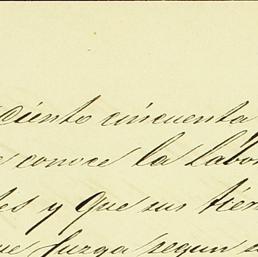 Ciento cincuenta
conoce la labor
y que sus tien
que juzga segun